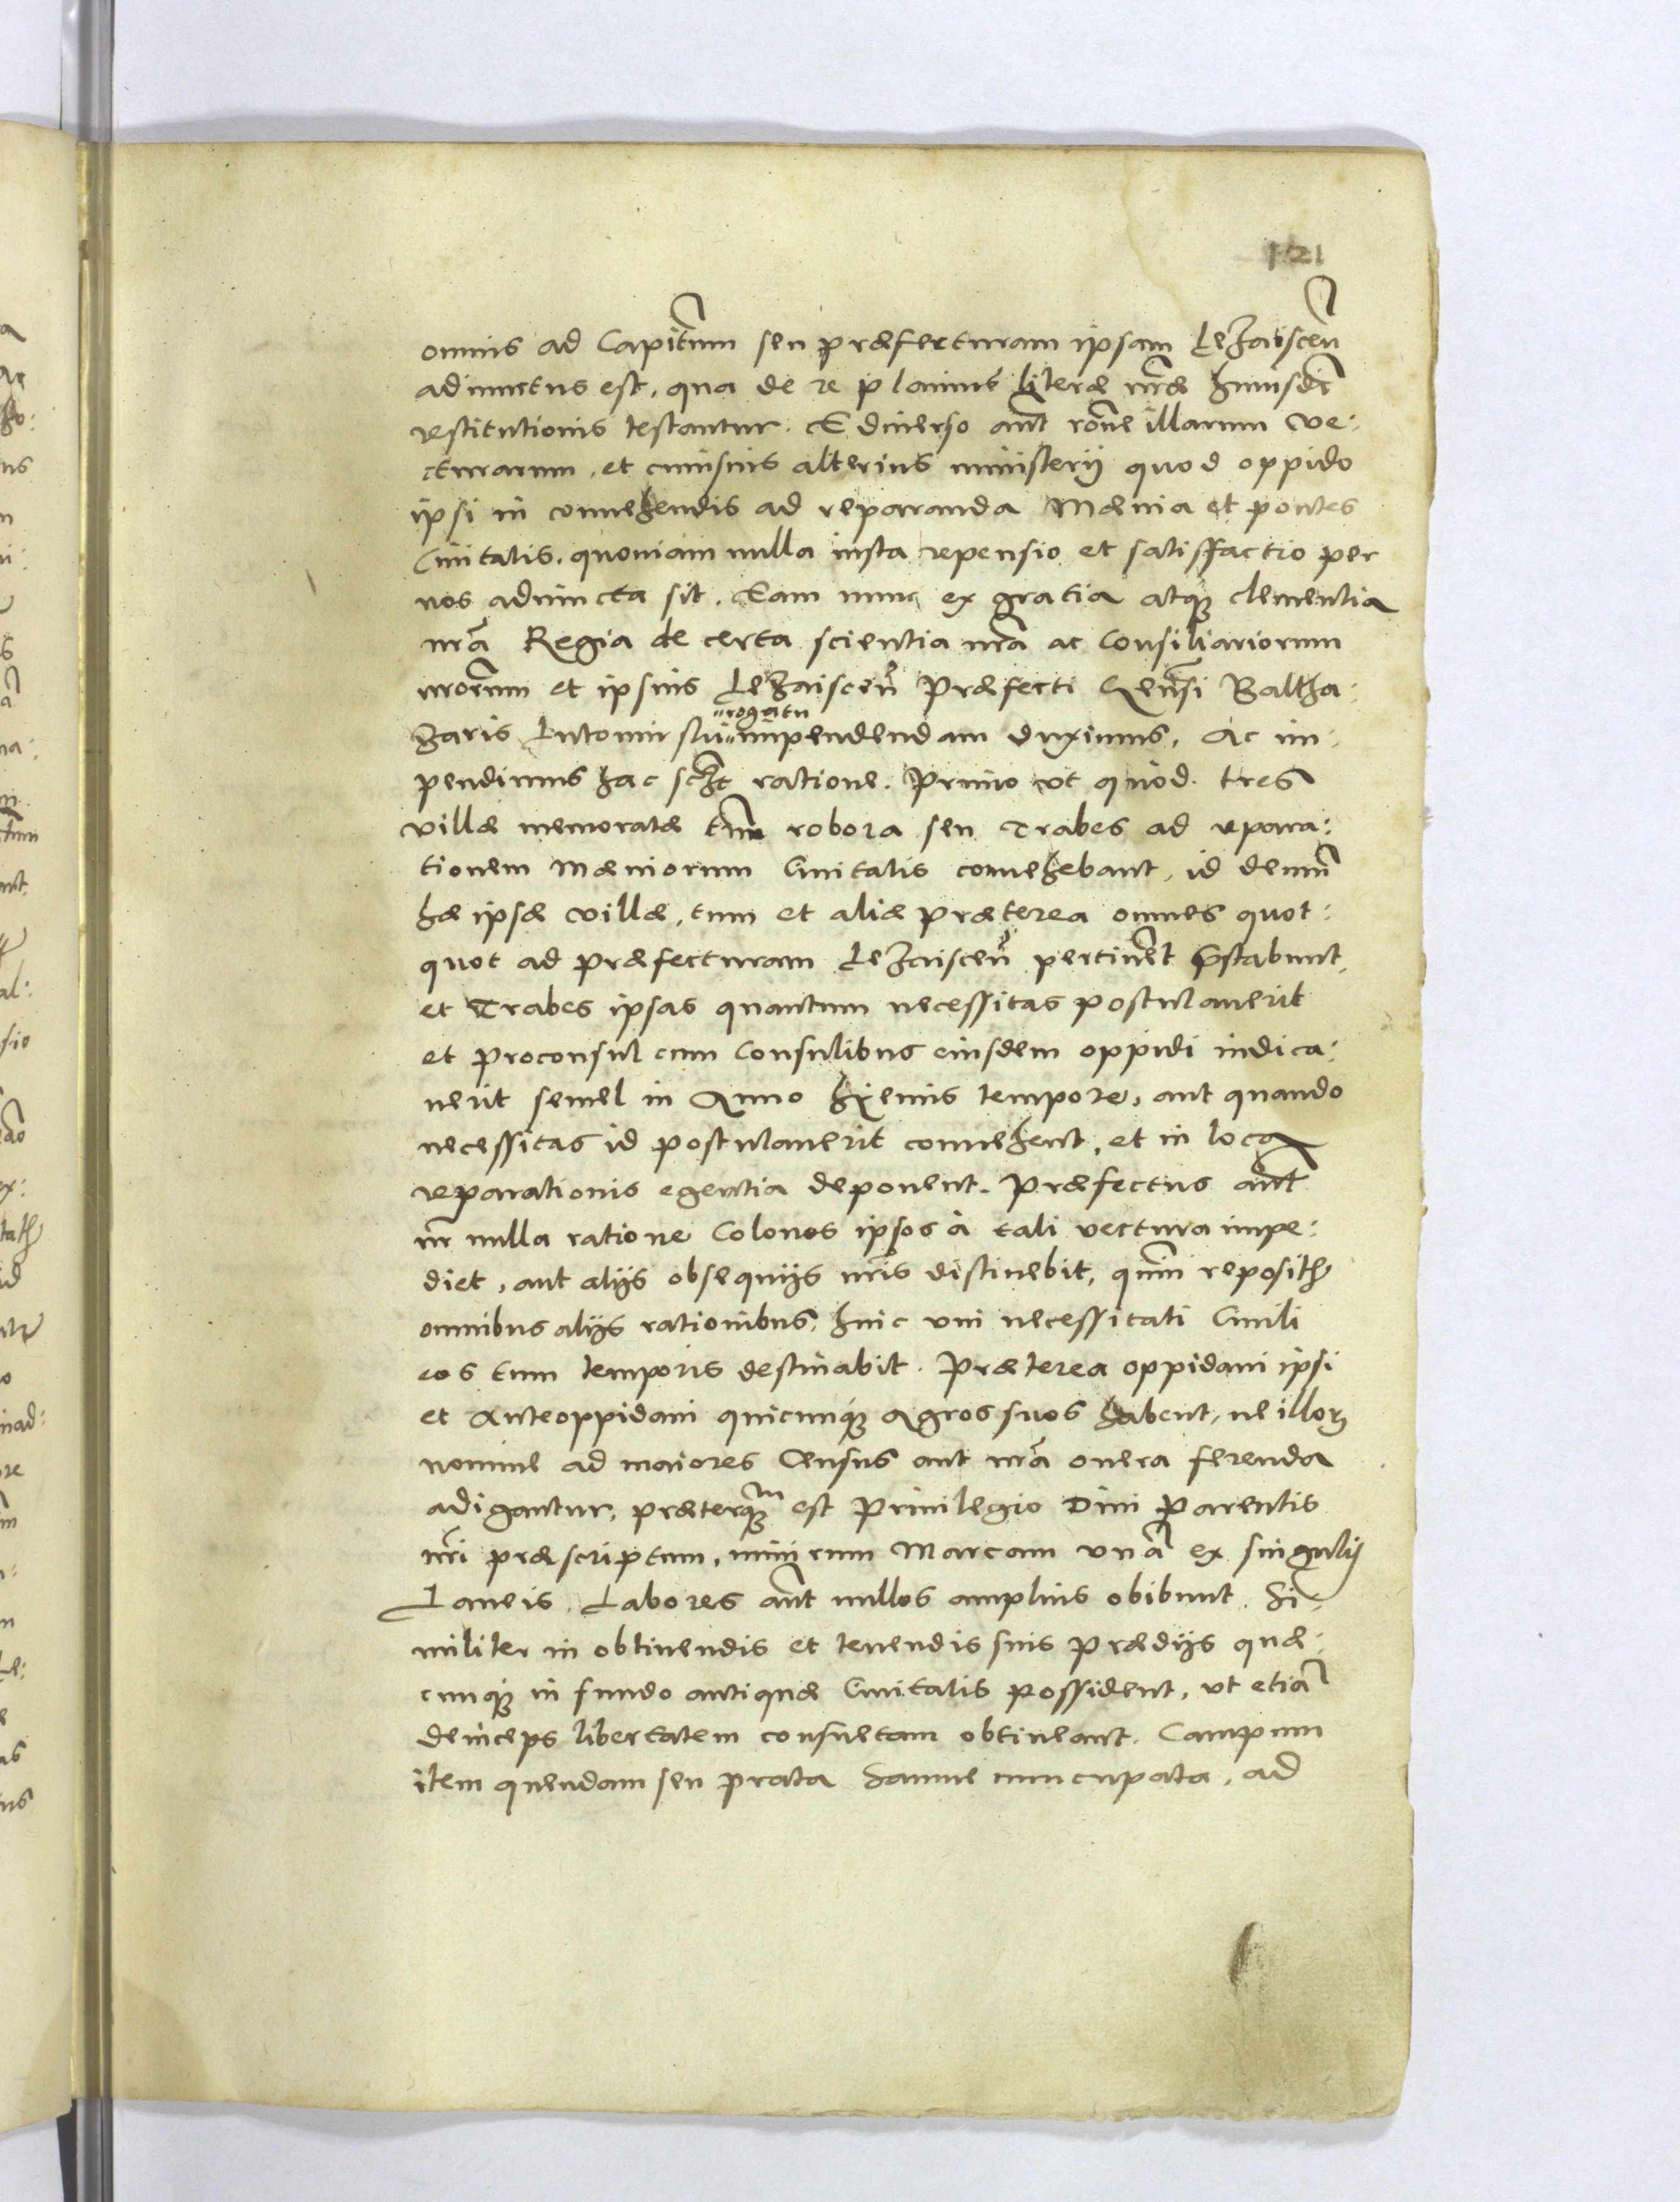 121
omnis ad Capitm̃ seu præfecturam ipsam Leʒaiscen̄
adiunctus est, qua de re p lanius literæ nr̃æ huiusdc̃
restitutionis testantur. E diuerso aut̃ rōne illarum ve:
cturarum, et cuiusuis alterius ministerij quod oppido
ipsi in conuehendis ad reparanda Mænia et pontes
Ciuitatis. quoniam nulla iusta repensio et satisfactio per
nos adiuncta sit. Eam nunc ex gratia atq; clementia
nr̃a Regia de certa scientia nr̃a ac Consiliariorum
nrorum et ipsius Leʒaiscen̄ Præfecti Balthа:
ʒaris Lutomirscij "rogatu" impendendam duximus. Ac im:
pendimus hac sclt̃ ratione. Primo vt quod tres
villæ memoratæ tm̃ robora seu Trabes ad repara:
tionem Mæniorum Ciuitatis conuehebant, id demũ
hæ ipsæ villæ, tum et aliæ præterea omnes quot:
quot ad præfecturam Leʒaiscen̄ pertinẽt p̃stabunt,
et Trabes ipsas quantum necessitas postulauerit
et proconsul cum Consulibus eiusdem oppidi iudica:
uerit semel in Anno hÿemis tempore, aut quando
necessitas id postulauerit conuehent, et in loca
reparationis egentia deponent. Præfectus aut̃
nr̃ nulla ratione Colonos ipsos à tali vectura impe:
diet, aut alijs obsequijs nr̃is distinebit, quin repositis
omnibus alijs rationibus, huic vni necessitati Ciuili
eos tum temporis destinabit. Præterea oppidani ipsi
et Anteoppidani quicunq; agros suos habent, ne illoꝝ
nomine ad maiores Census aut nr̃a onera ferenda
adigantur, præterq;m est Priuilegio Diui Parentis
nr̃i præscriptum, nimirum Marcam vnã ex singulis
Laneis. Labores aut̃ nullos amplius obibunt. Si
militer in obtinendis et tenendis suis prædijs quæ:
cunq; in fundo antiquæ Ciuitatis possident, vt etiã
deinceps libertatem consuetam obtineant. Campum
item quendam seu prata nuncupata, ad